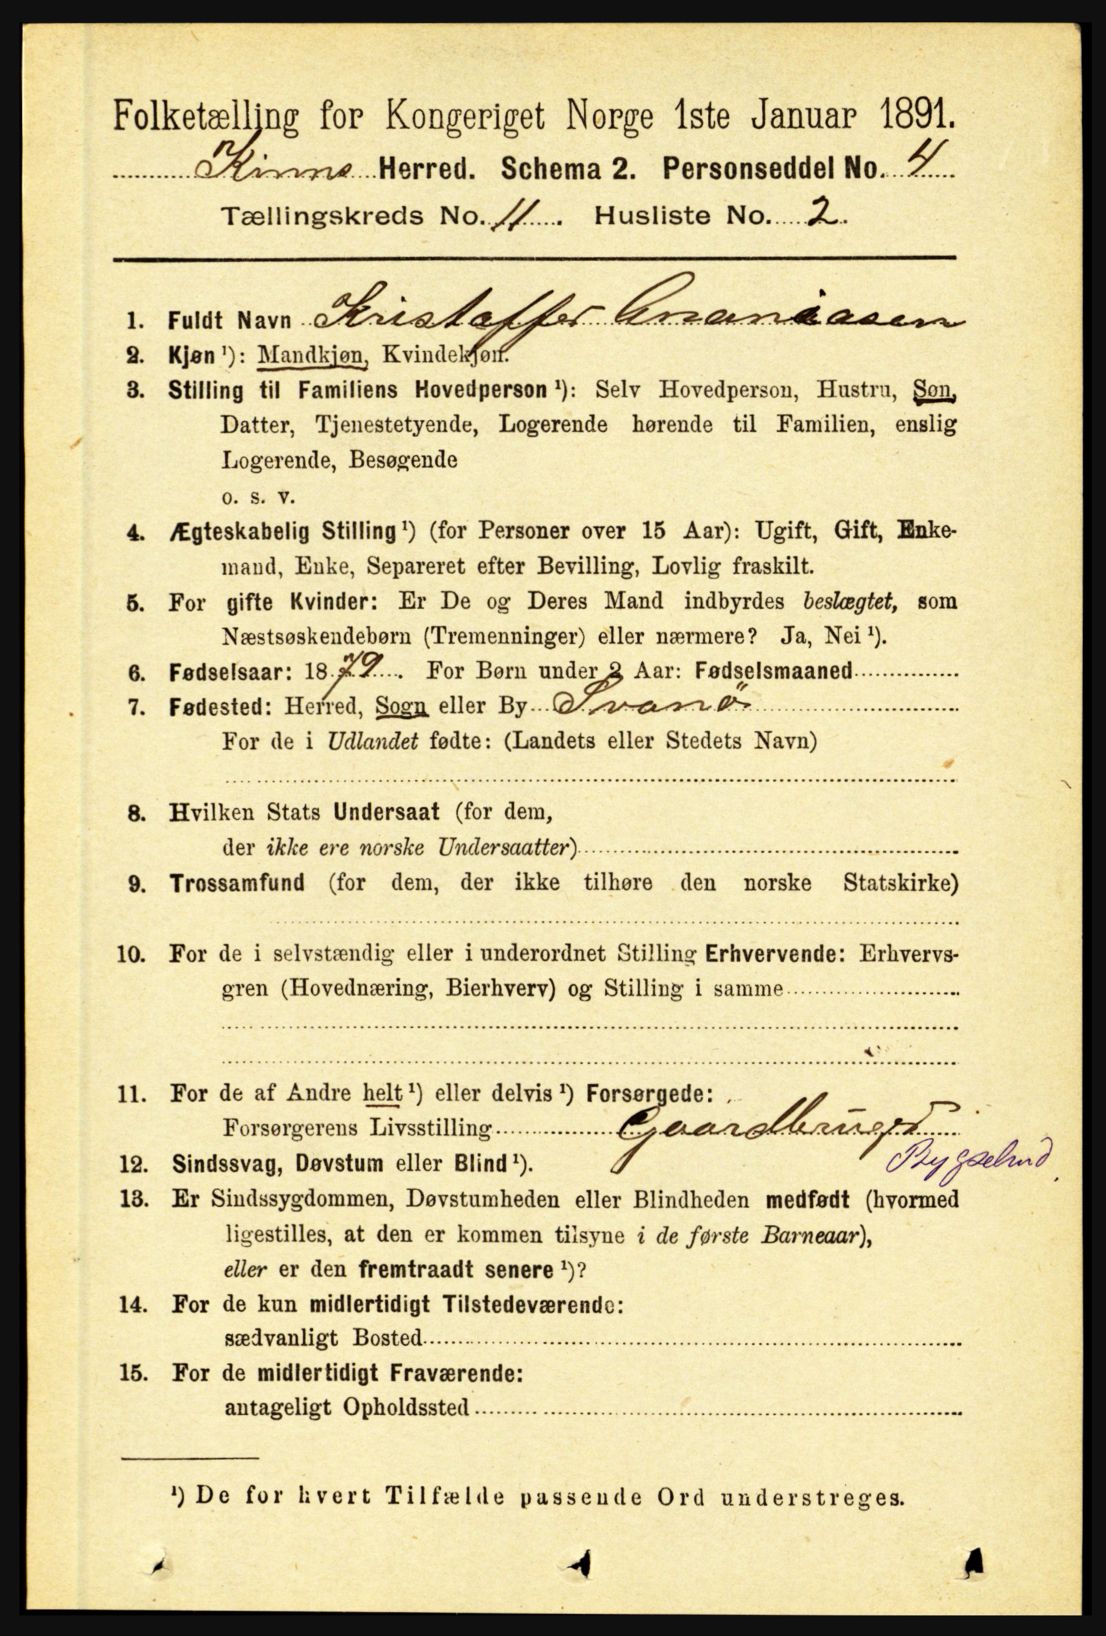 Folketælling for Kongeriget Norge 1ste Januar 1891.
Kinns Herred. Schema 2. Personseddel No. 4
Tællingskreds No. 11. Husliste No. 2.
1. Fuldt Navn Kristoffer Ananiasen
2. Kjøn ¹): Mandkjøn, Kvindekjøn.
3. Stilling til Familiens Hovedperson ¹): Selv Hovedperson, Hustru, Søn,
Datter, Tjenestetyende, Logerende hørende til Familien, enslig
Logerende, Besøgende
o. s. v.
4. Ægteskabelig Stilling ¹) (for Personer over 15 Aar): Ugift, Gift, Enke-
mand, Enke, Separeret efter Bevilling, Lovlig fraskilt.
5. For gifte Kvinder: Er De og Deres Mand indbyrdes beslægtet, som
Næstsøskendebørn (Tremenninger) eller nærmere? Ja, Nei ¹).
6. Fødselsaar: 1879. For Børn under 2 Aar: Fødselsmaaned
7. Fødested: Herred, Sogn eller By Svanø
For de i Udlandet fødte: (Landets eller Stedets Navn)
8. Hvilken Stats Undersaat (for dem,
der ikke ere norske Undersaatter)
9. Trossamfund (for dem, der ikke tilhøre den norske Statskirke)
10. For de i selvstændig eller i underordnet Stilling Erhvervende: Erhvervs-
gren (Hovednæring, Bierhverv) og Stilling i samme
11. For de af Andre helt ¹) eller delvis ¹) Forsørgede:
Forsørgerens Livsstilling Gaardbruger
Bygselmd.
12. Sindssvag, Døvstum eller Blind ¹).
13. Er Sindssygdommen, Døvstumheden eller Blindheden medfødt (hvormed
ligestilles, at den er kommen tilsyne i de første Barneaar),
eller er den fremtraadt senere ¹)?
14. For de kun midlertidigt Tilstedeværende:
sædvanligt Bosted
15. For de midlertidigt Fraværende:
antageligt Opholdssted
¹) De for hvert Tilfælde passende Ord understreges.